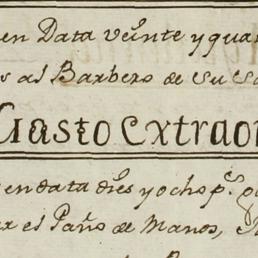 en Data veinte y qua
s al Barbero de su sa
Gasto extraor
en data diez y ocho p.s
ar el Paño de Manos,